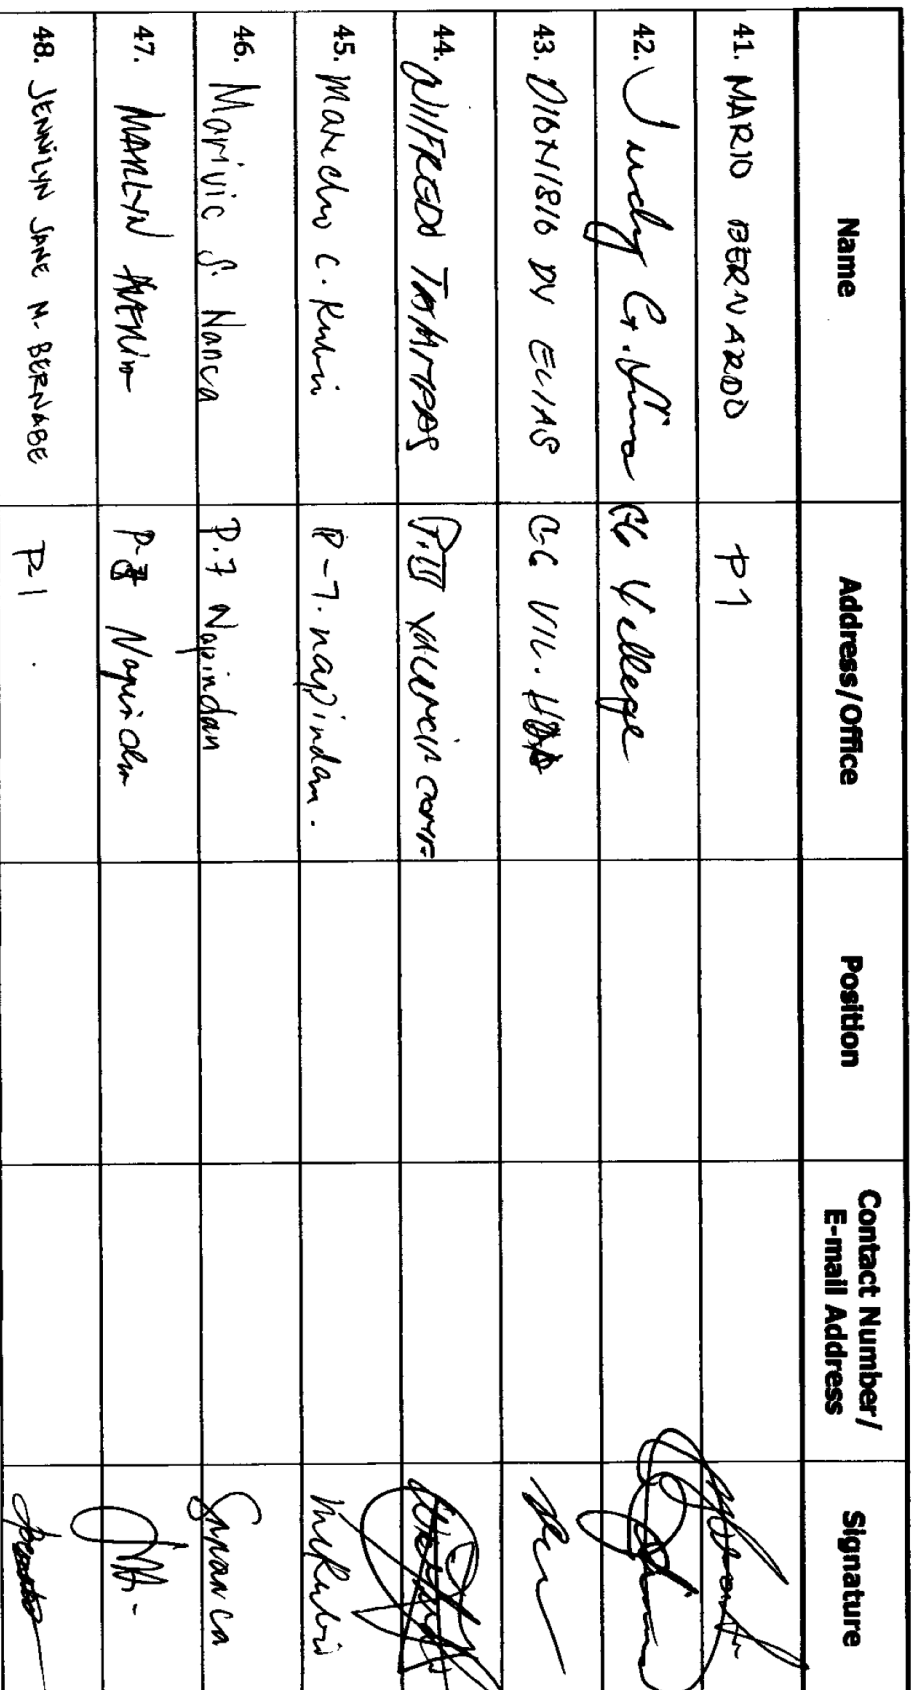 Name Address/Office Position Contact Number/ E-mail Address Signature
41. MARIO BERNARDO P1
42. Judy G. CG Village
43. DIONISIO DY ELIAS CG VIL. HOA
44. WILFREDO TAMPAS P.III VALENCIA COMP
45. Marcelino C. Rubio P-7. napindan. McRubio
46. Marivic S. Nanca P.7 Napindan Smanca
47. MARLYN P-7 Napindan
48. JENNILYN JANE M. BERNABE P-1.